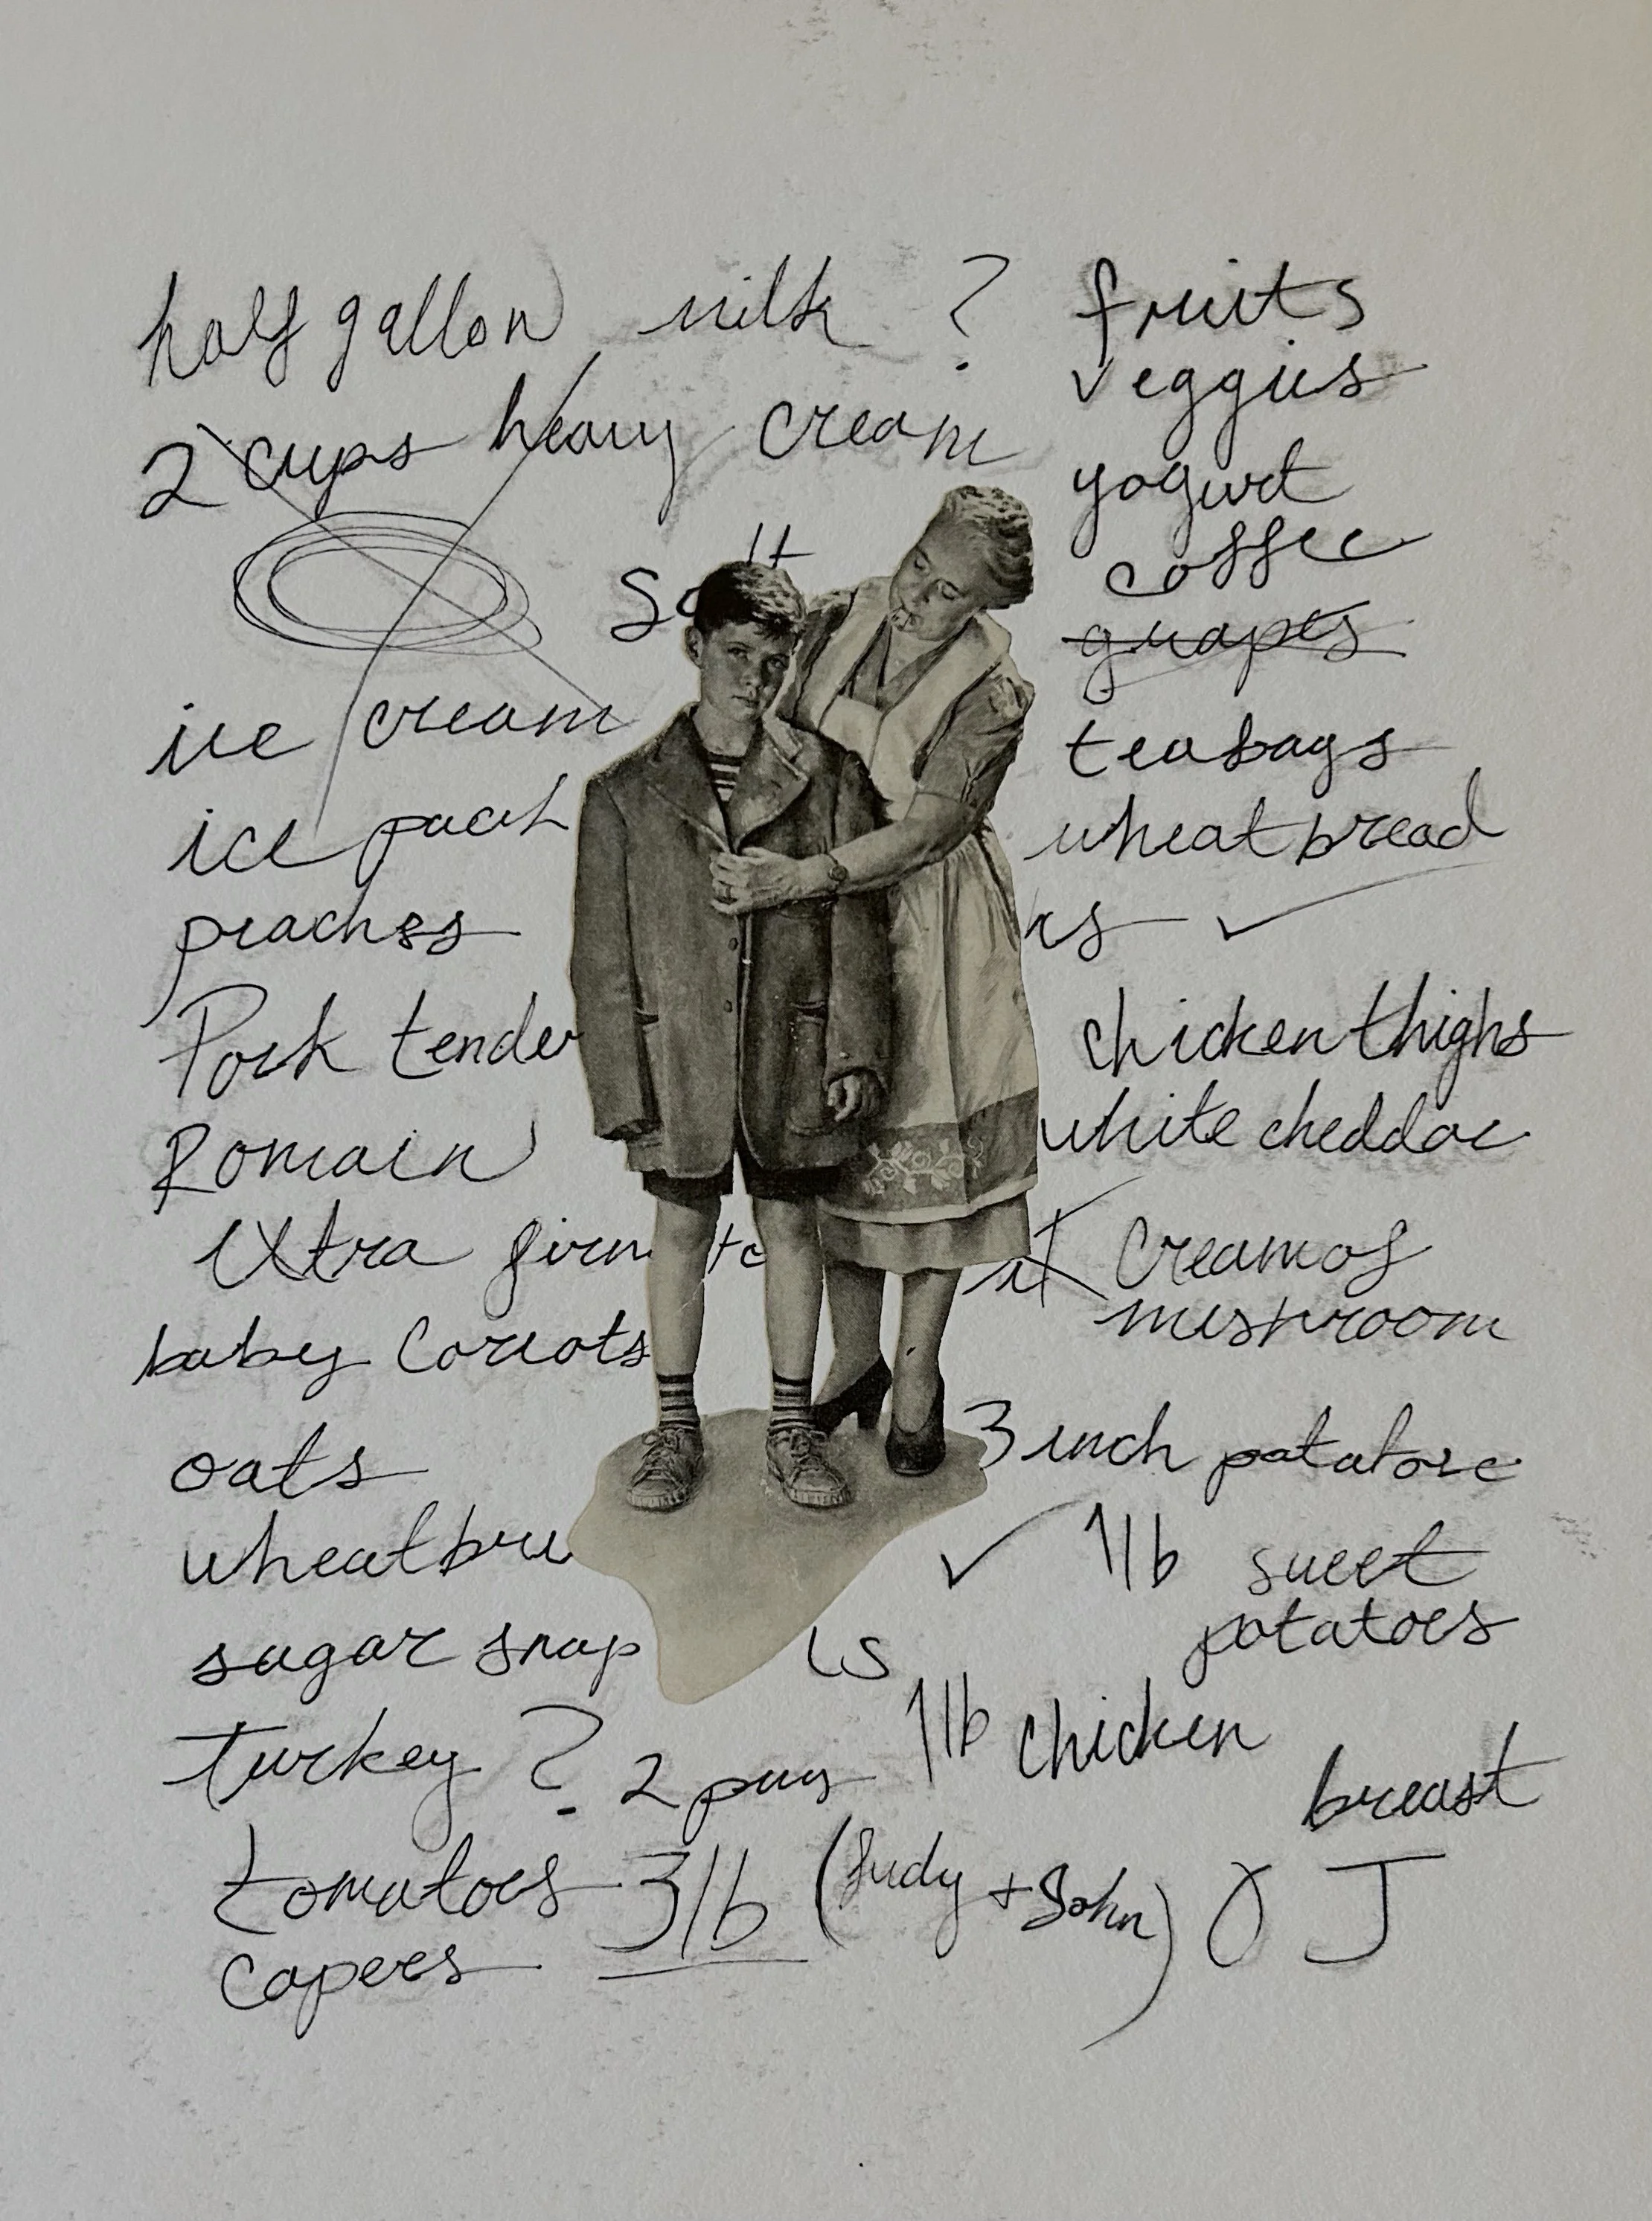 half gallon milk ?
2 cups heavy cream
ice cream
ice pack
peaches
Pork tender
Romain
extra firm
baby carrots
oats
wheat
sugar snap
turkey ? 2
tomatoes 3lb (Judy + John)
capers
fruits
veggies
yogurt
coffee
grapes
teabags
wheat bread
chicken thighs
white cheddar
Cream of
mushroom
3 inch
1lb sweet
potatoes
1lb chicken
breast
OJ